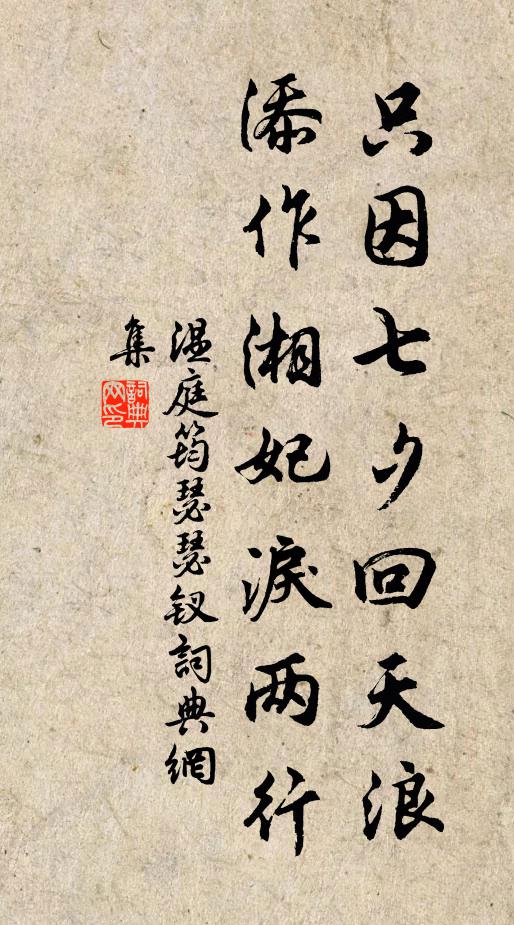 只因七夕回天浪
添作湘妃淚两行
温庭筠瑟瑟釵詞典網
集
詞典網印